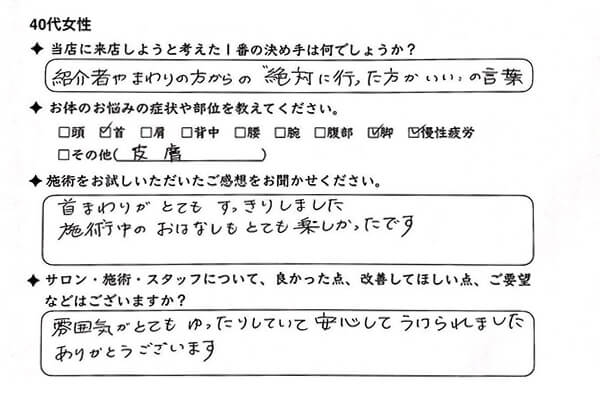 40代女性
✦ 当店に来店しようと考えた1番の決め手は何でしょうか?
紹介者やまわりの方からの"絶対に行った方がいい"の言葉
✦ お体のお悩みの症状や部位を教えてください。
□頭 ☑首 □肩 □背中 □腰 □腕 □腹部 ☑脚 ☑慢性疲労
□その他(皮膚)
✦ 施術をお試しいただいたご感想をお聞かせください。
首まわりがとてもすっきりしました
施術中のおはなしもとても楽しかったです
✦ サロン・施術・スタッフについて、良かった点、改善してほしい点、ご要望
などはございますか?
雰囲気がとてもゆったりしていて安心してうけられました
ありがとうございます